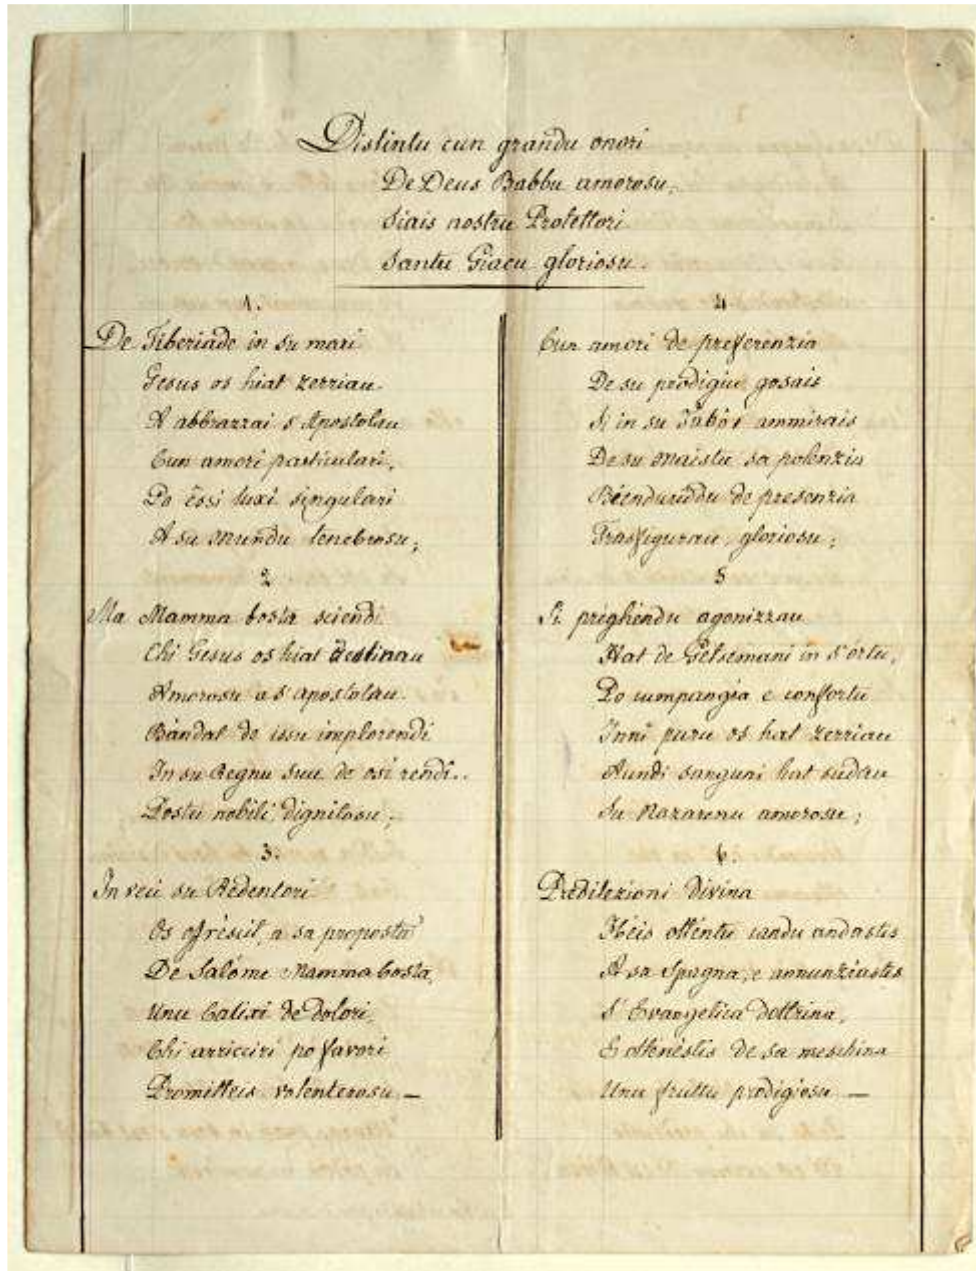 Distintu cun grandu onori
De Deus Babbu amorosu,
Siais nostru Protettori
Santu Giacu gloriosu.
1.
De Tiberiade in su mari
Gesus os hiat zerriau
A abbrazzai s'Apostolau
Cun amori particulari,
Po èssi luxi singulari
A su Mundu tenebrosu;
2
Ma Mamma bosta sciendi
Chi Gesus os hiat destinau
Amorosu a s'apostolau
Bàndat de issu implorendi
In su Regnu suu de osi rendi..
Postu nobili, dignitosu;
3.
In veci su Redentori
Os ofrèsit, a sa proposta
De Salòme Mamma bosta,
Unu Calixi de dolori,
Chi arricciri po favori
Promitteis volenterosu —
4
Cun amori de preferenzia
De su prodigiu gosais
Si in su Tabor ammirais
De su Maistu sa potenzia
Biendurìddu de presenzia
Trasfigurau, gloriosu;
5
Si prèghiendu agonizzau
Hat de Getsemani in s'ortu,
Po cumpangia e confortu
Innì puru os hat zerriau
Aundi sanguni hat sudau
Su Nazarenu amorosu;
6.
Predilezioni divina
Hèis ottèntu candu andastis
A sa Spagna, e annunziastis
S'Evangelica dottrina,
E ottenèstis de sa meschina
Unu fruttu prodigiosu —